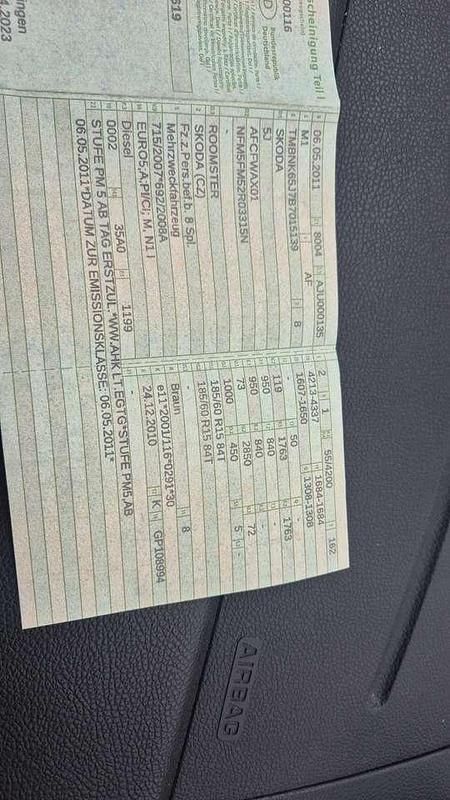 scheinigung Teil I
D
Bundesrepublik
Deutschland
00116
619
ingen
4.2023
06.05.2011 8004 AJU000135
M1 AF
TMBNK65J7B7015139 8
SKODA
5J
AFCFWAX01
NFM5FM52R03315N
-
ROOMSTER
SKODA (CZ)
Fz.z.Pers.bef.b. 8 Spl.
Mehrzweckfahrzeug
715/2007*692/2008A
EURO5;A;PI/CI; M, N1 I
Diesel
0002 35A0 1199
STUFE PM 5 AB TAG ERSTZUL.*WW.AHK LT.EGTG*STUFE PM5,AB
06.05.2011*DATUM ZUR EMISSIONSKLASSE: 06.05.2011*
2 1 55/4200 162
4213-4337 1684-1684
1607-1650 1308-1308
- 50
119 1763 1763
950 840 -
950 840 -
73 2850 72
1000 450 5 -
185/60 R15 84T
185/60 R15 84T
-
Braun 8
e11*2001/116*0291*30
24.12.2010 K GP108994
AIRBAG